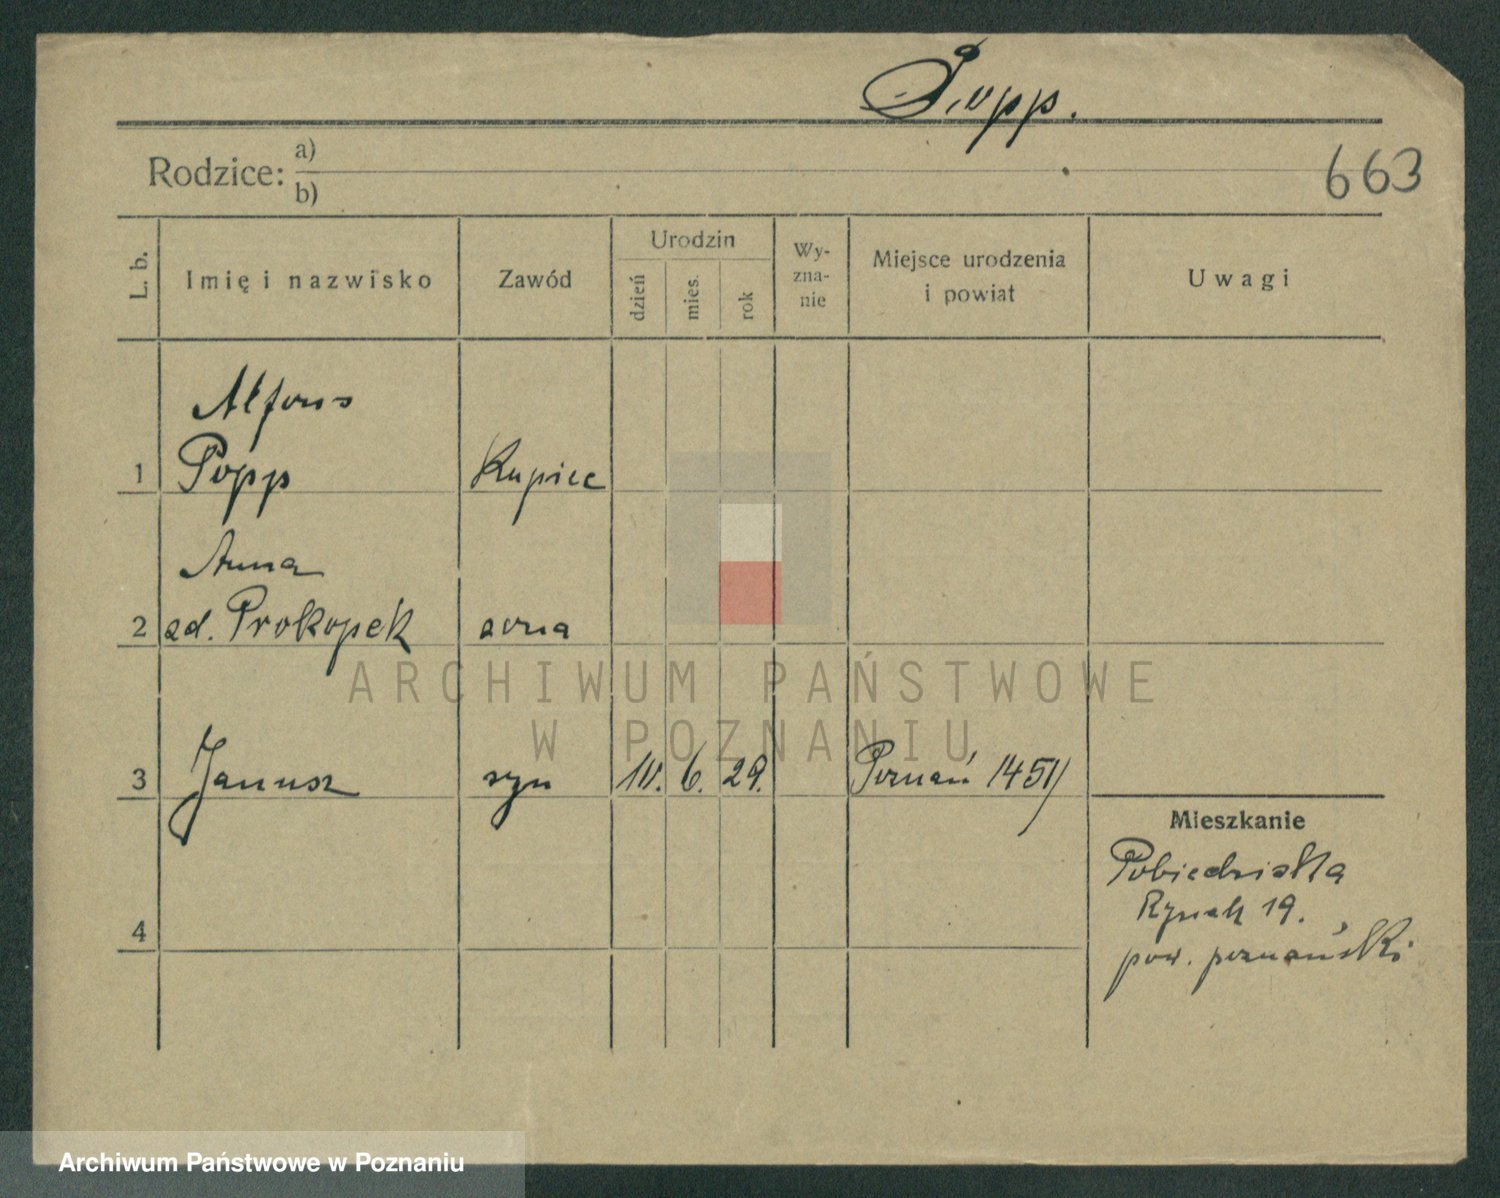 Popp.
663
Rodzice: a)
b)
L. b.
Imię i nazwisko
Zawód
Urodzin
dzień
mies.
rok
Wy-
zna-
nie
Miejsce urodzenia
i powiat
Uwagi
Alfons
1 Popp Kupiec
Anna
2 zd. Prokopek żona
3 Janusz syn 10. 6. 29. Poznań 1451/
Mieszkanie
Pobiedziska
Rynek 19.
pow. poznański
4
ARCHIWUM PAŃSTWOWE
W POZNANIU
Archiwum Państwowe w Poznaniu